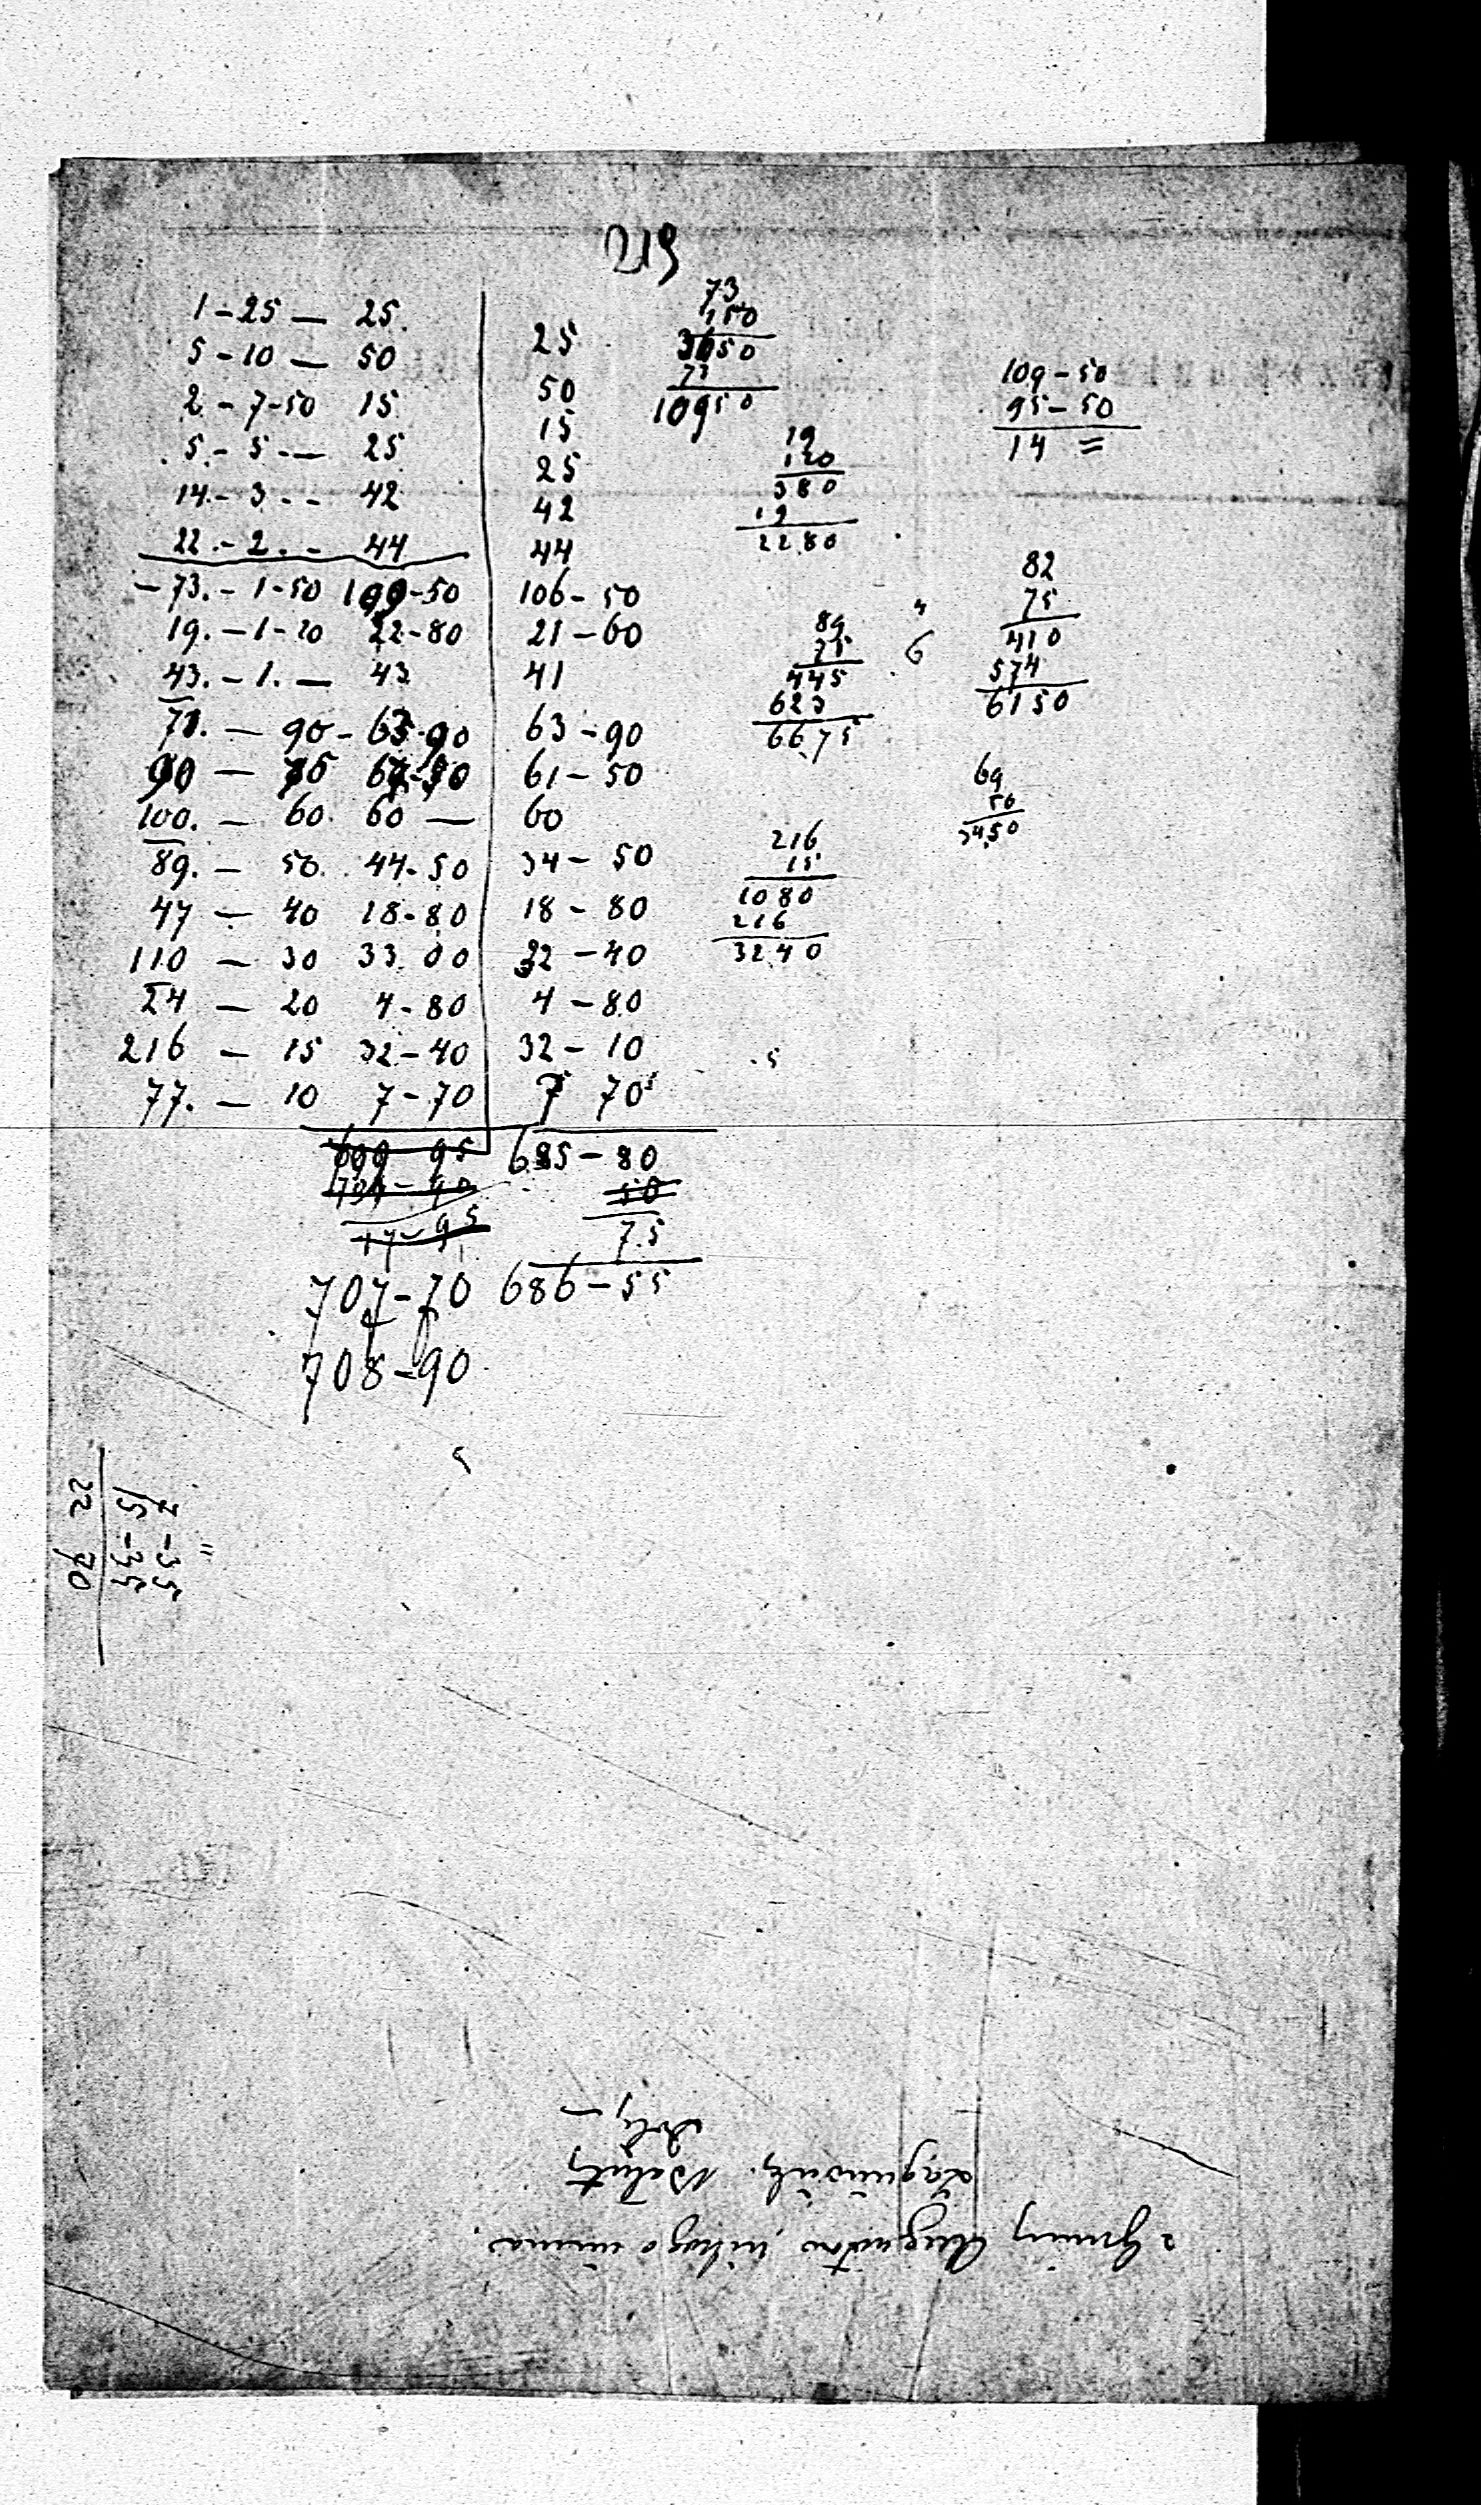 219
1-25 — 25.
5-10 — 50
2.-7-50 15
5.-5.— 25
14.-3.- 42
22.-2.- 44
-73.-1-50 109-50
19.-1-20 22-80
43.-1.— 43.
71.— 90-63-90
90 — 75 67-50
100.— 60. 60 —
89.— 50. 44-50
47 — 40 18-80
110 — 30 33.00
24 — 20 4-80
216 — 15 32-40
77.— 10 7-70
707-70
708-90
25
50
15
25
42
44
106-50
21-60
41
63-90
61-50
60
34-50
18-80
32-40
4-80
32-10
7 70
685-80
50
75
686-55
73
150
3650
73
10950
19
120
380
19
2280
89
75
445
623
6675
216
15
1080
216
3240
109-50
95-50
14 =
6
82
75
410
574
6150
69
50
3450
7-35
15-35
22 70